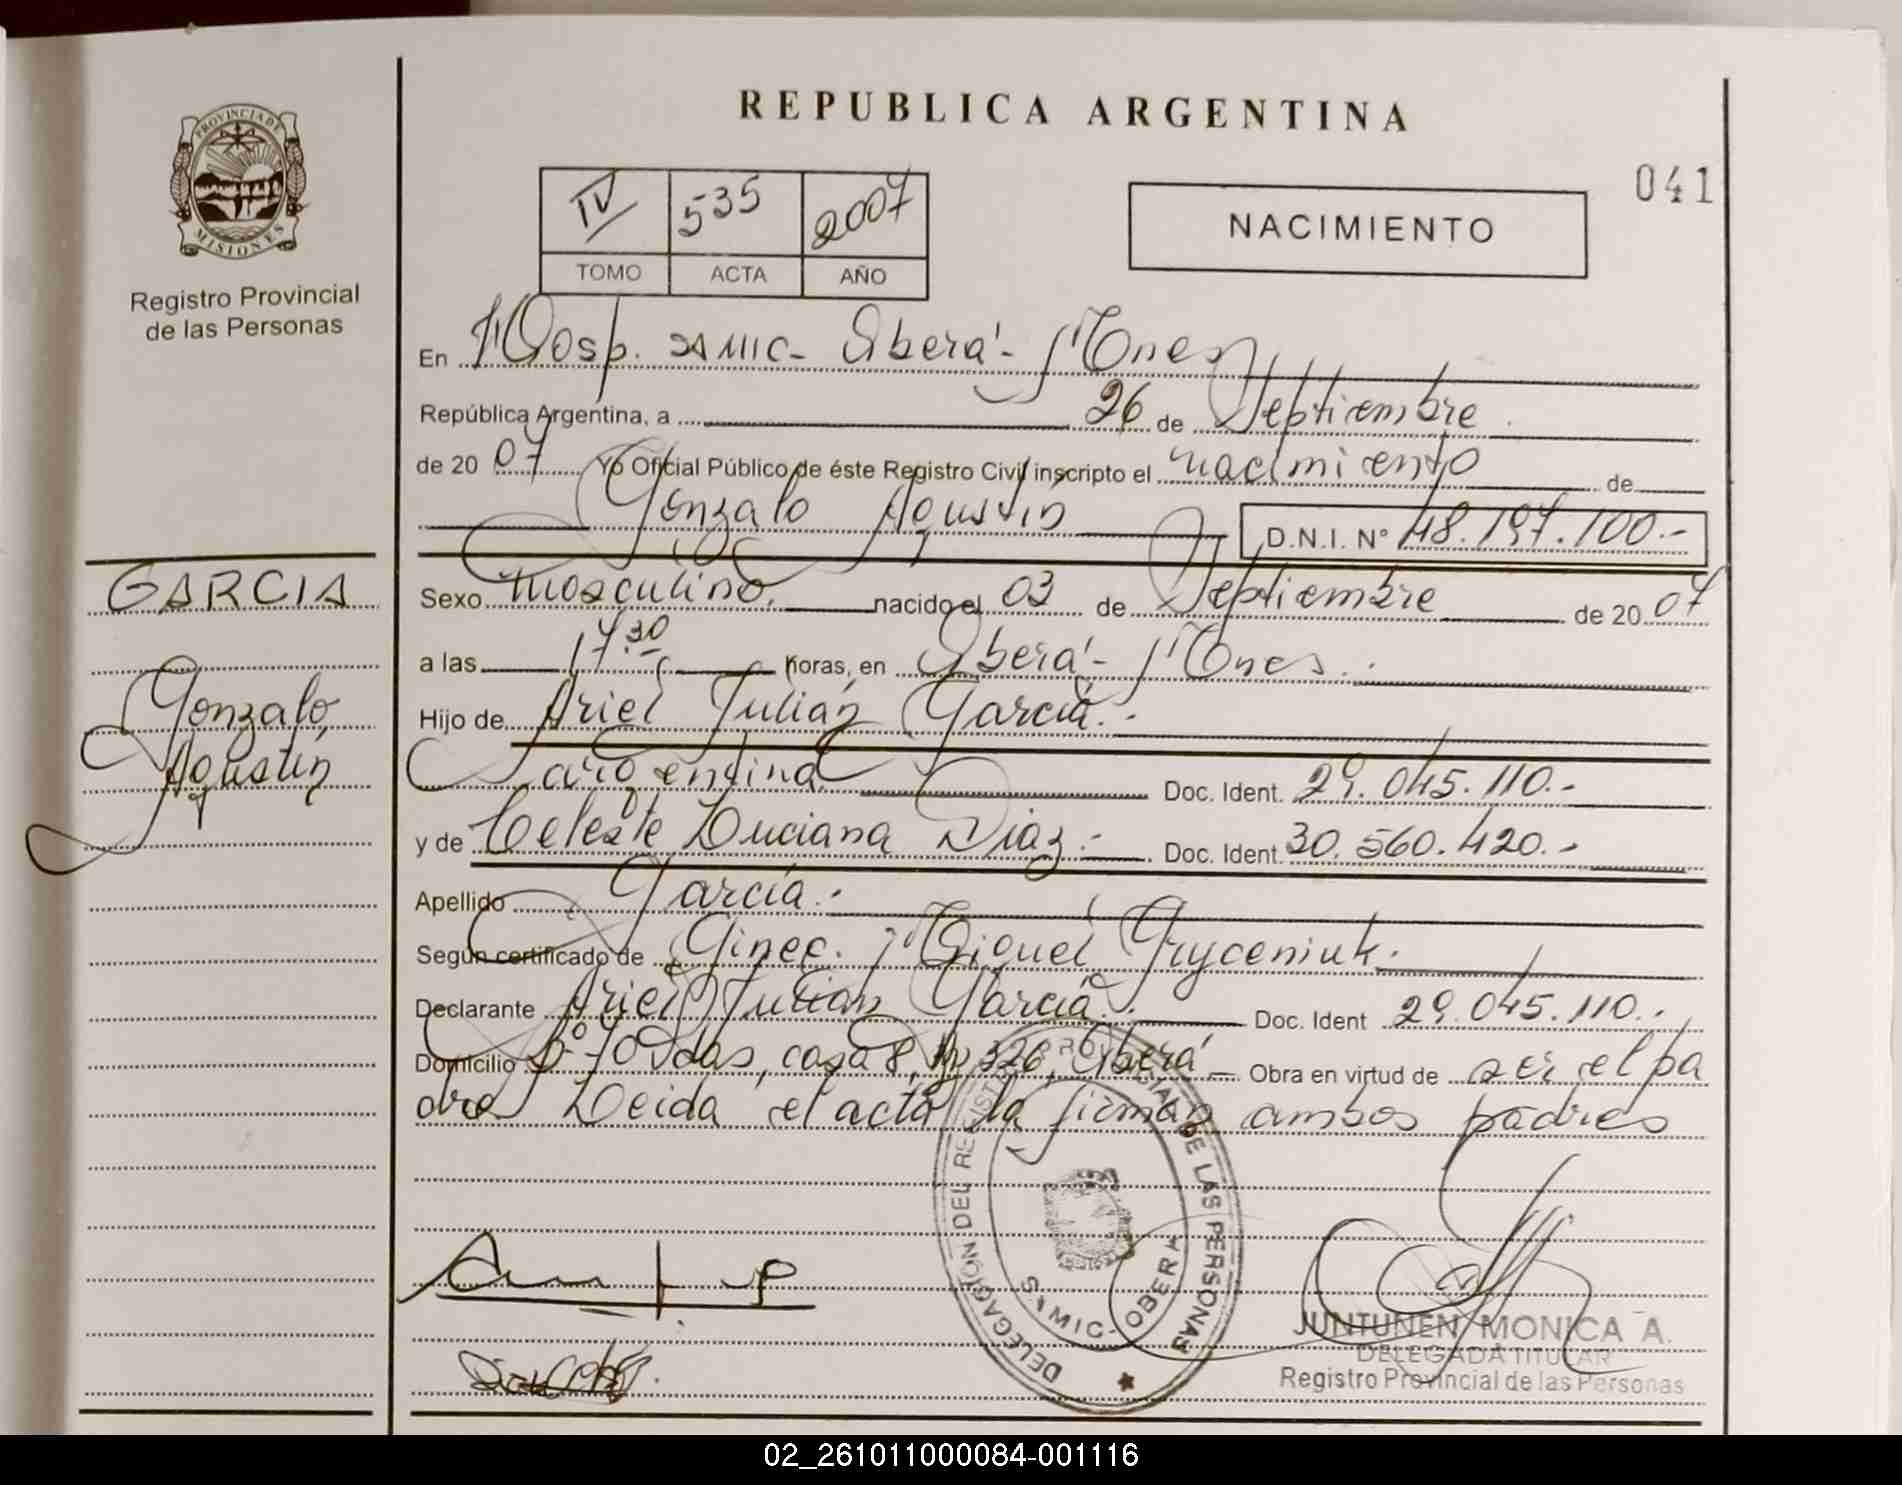 REPUBLICA ARGENTINA
041
PROVINCIA DE
MISIONES
Registro Provincial
de las Personas
IV 535 2007
TOMO ACTA AÑO
NACIMIENTO
En Hosp. SAMIC- Oberá- Mnes
República Argentina, a 26 de Septiembre
de 2007 Yo Oficial Público de éste Registro Civil inscripto el nacimiento de
Gonzalo Agustín D.N.I. N° 48.197.100.-
GARCIA
Gonzalo
Agustín
Sexo masculino. nacido el 03 de Septiembre de 2007
a las 17.30 horas, en Oberá- Mnes.
Hijo de Ariel Julián García.-
argentina Doc. Ident. 29.045.110.-
y de Celeste Luciana Diaz.- Doc. Ident. 30.560.420.-
Apellido García.-
Según certificado de Ginec. Miguel Gryceniuk.
Declarante Ariel Julián García.- Doc. Ident 29.045.110.-
Domicilio Bº 70 Vdas, casa 8, 326, Oberá- Obra en virtud de ser el pa
dre Leida el acta la firman ambos padres
DELEGACION DEL REGISTRO PROVINCIAL DE LAS PERSONAS
SAMIC- OBERA
JUNTUNEN MONICA A.
DELEGADA TITULAR
Registro Provincial de las Personas
02_261011000084-001116